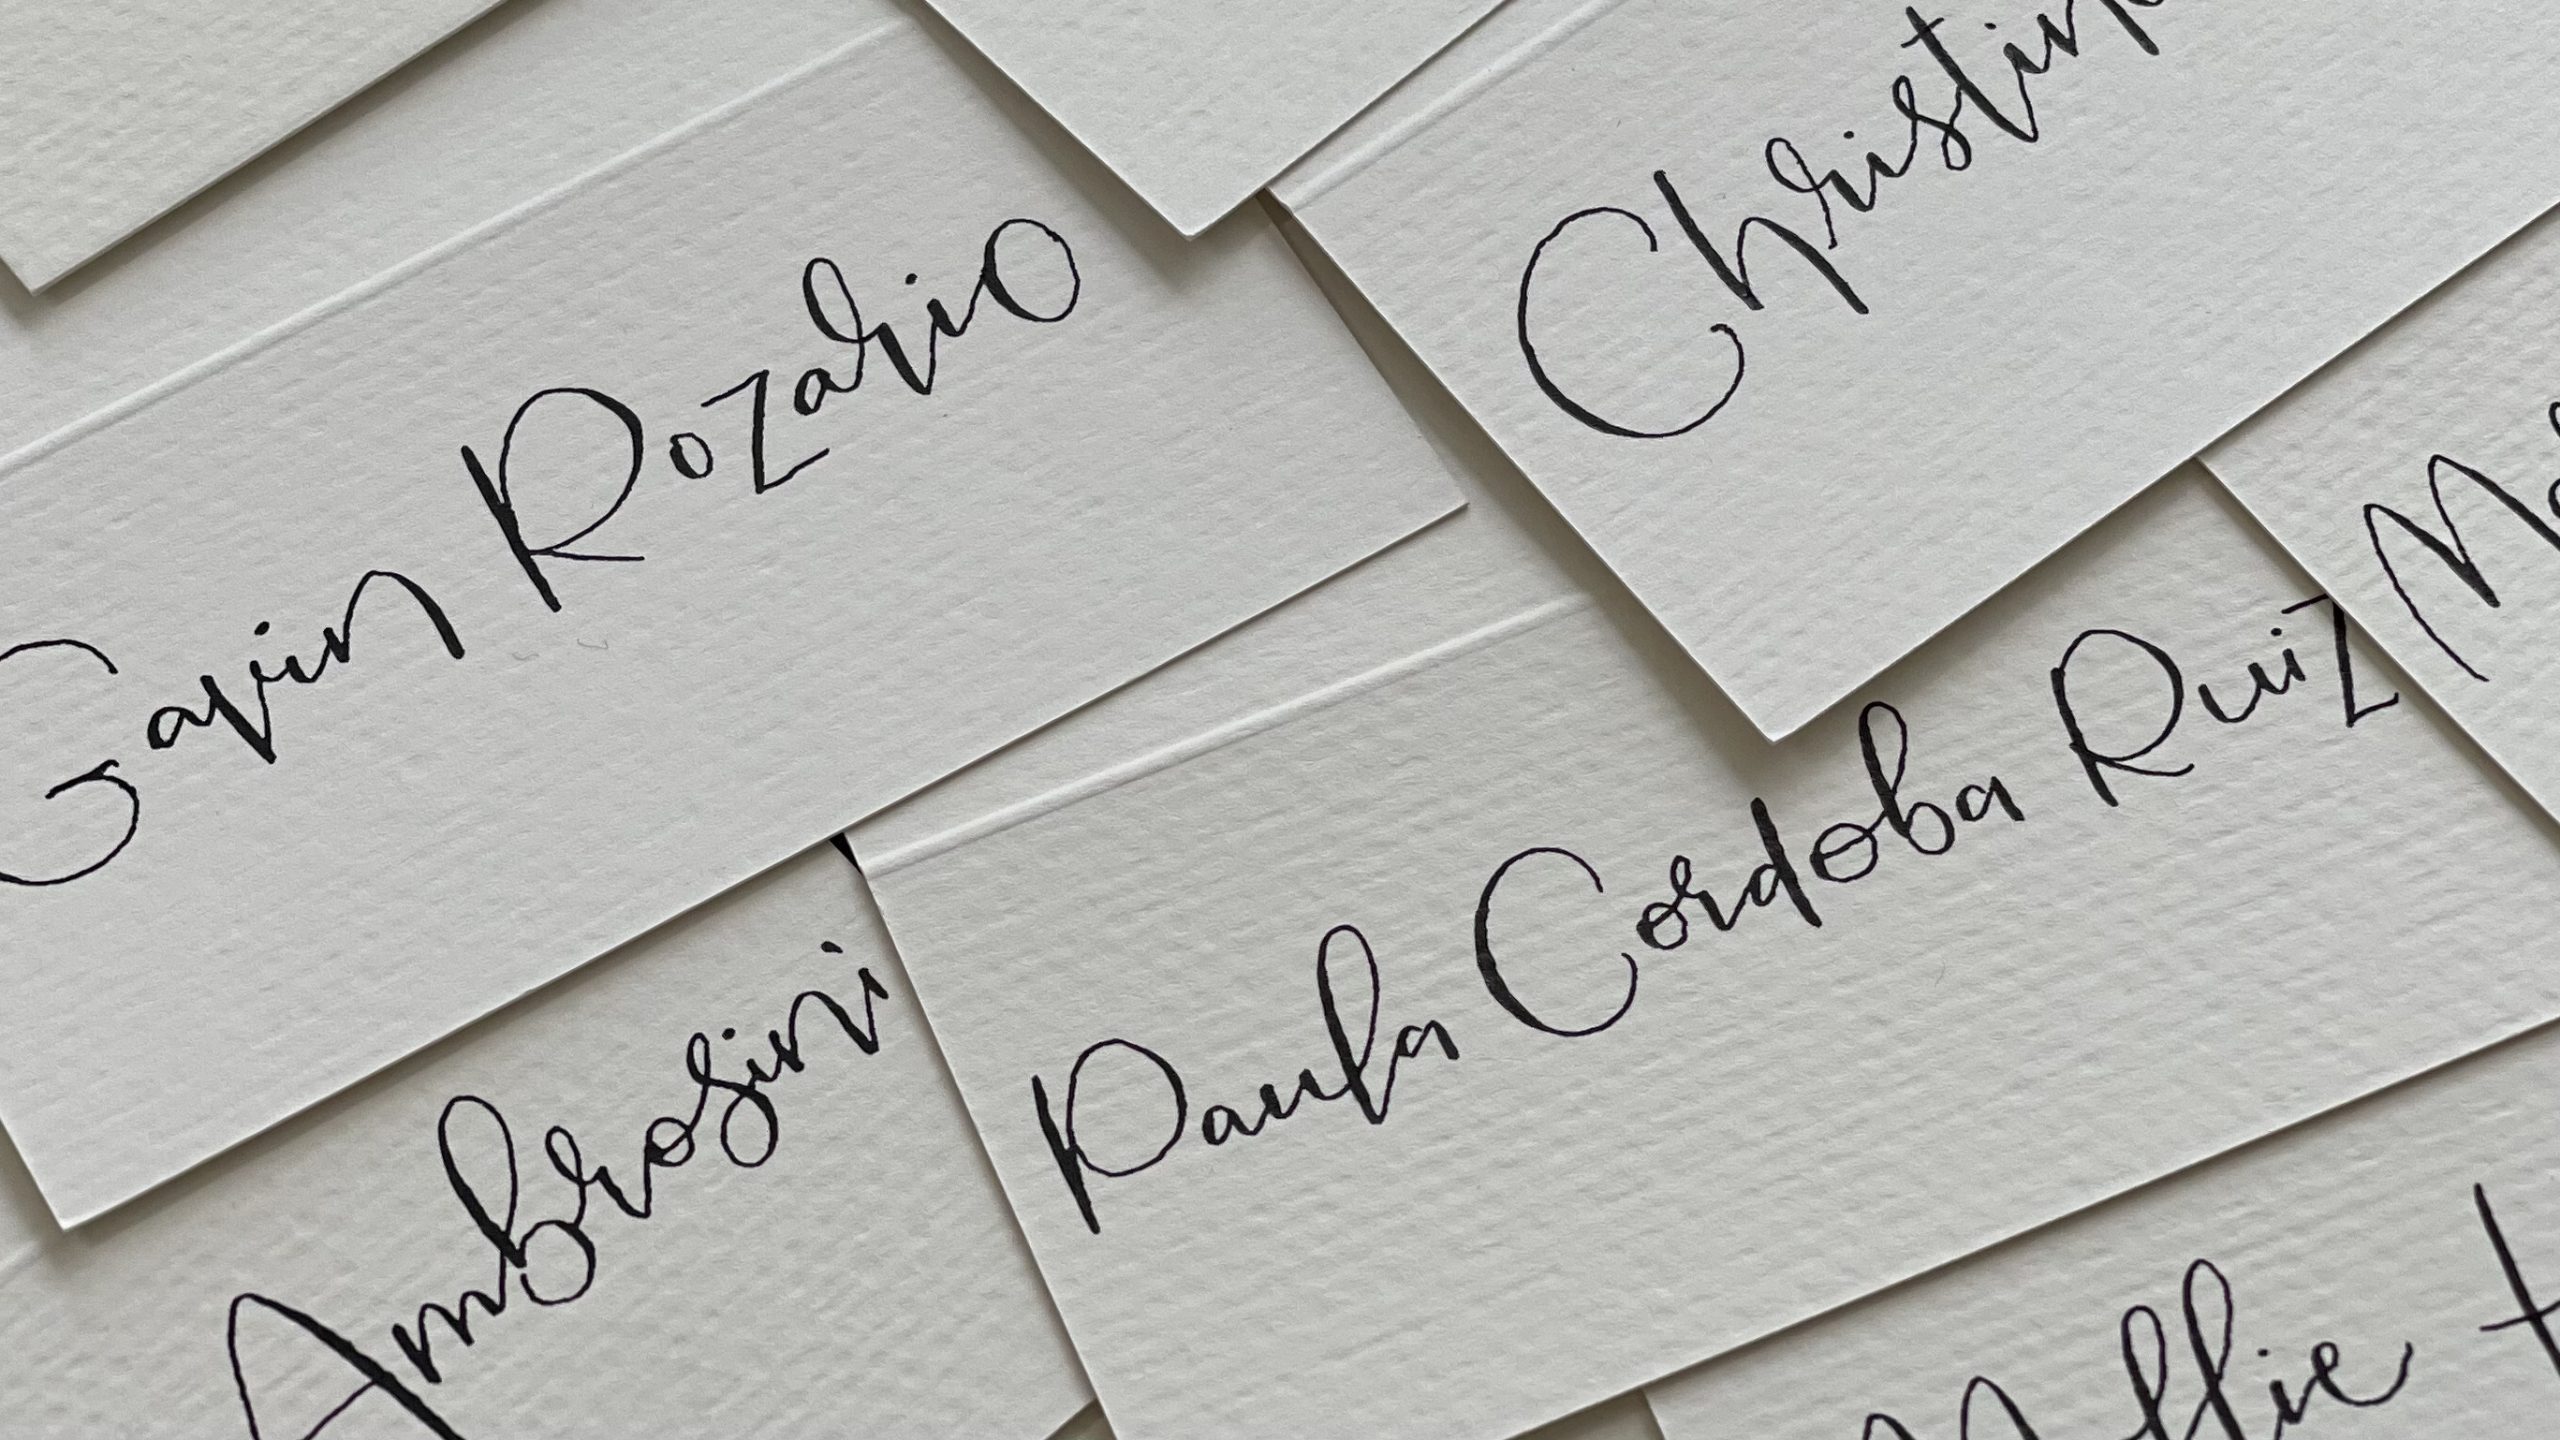 Christin
Gavin Rozario
Paula Cordoba Ruiz
Ambrosini